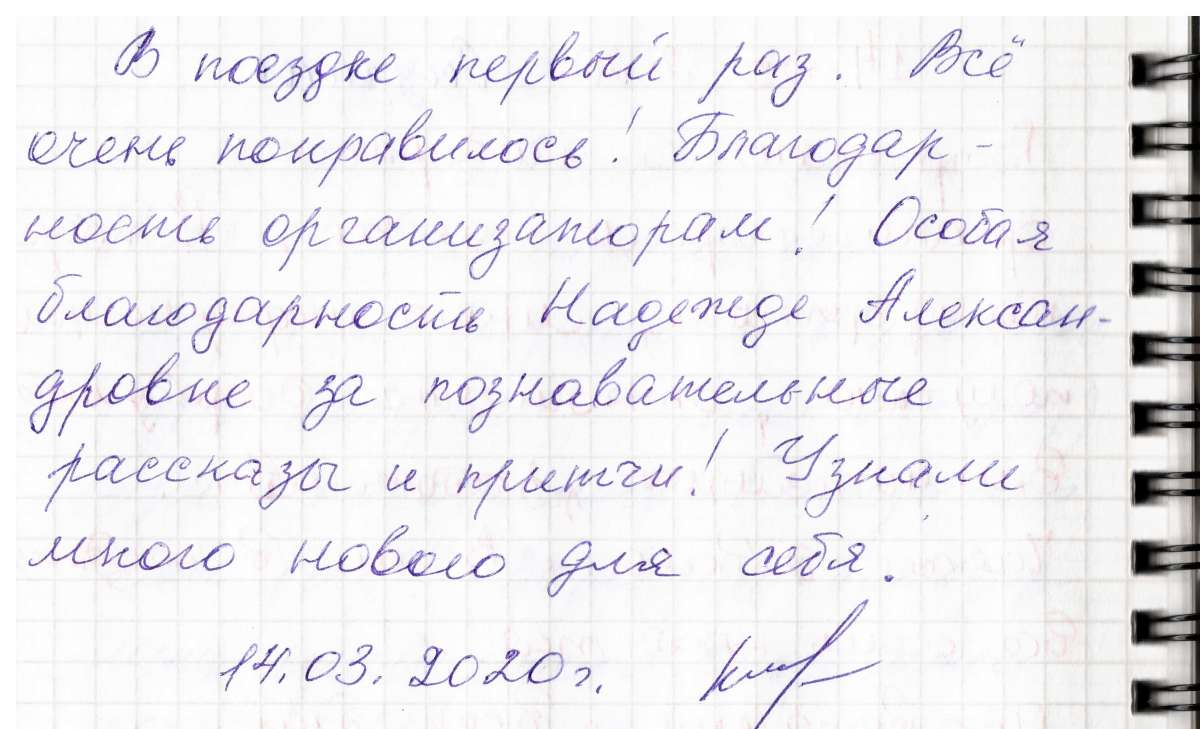 В поездке первый раз. Всё
очень понравилось! Благодар-
ность организаторам! Особая
благодарность Надежде Алексан-
дровне за познавательные
рассказы и притчи! Узнали
много нового для себя.
14.03.2020г.